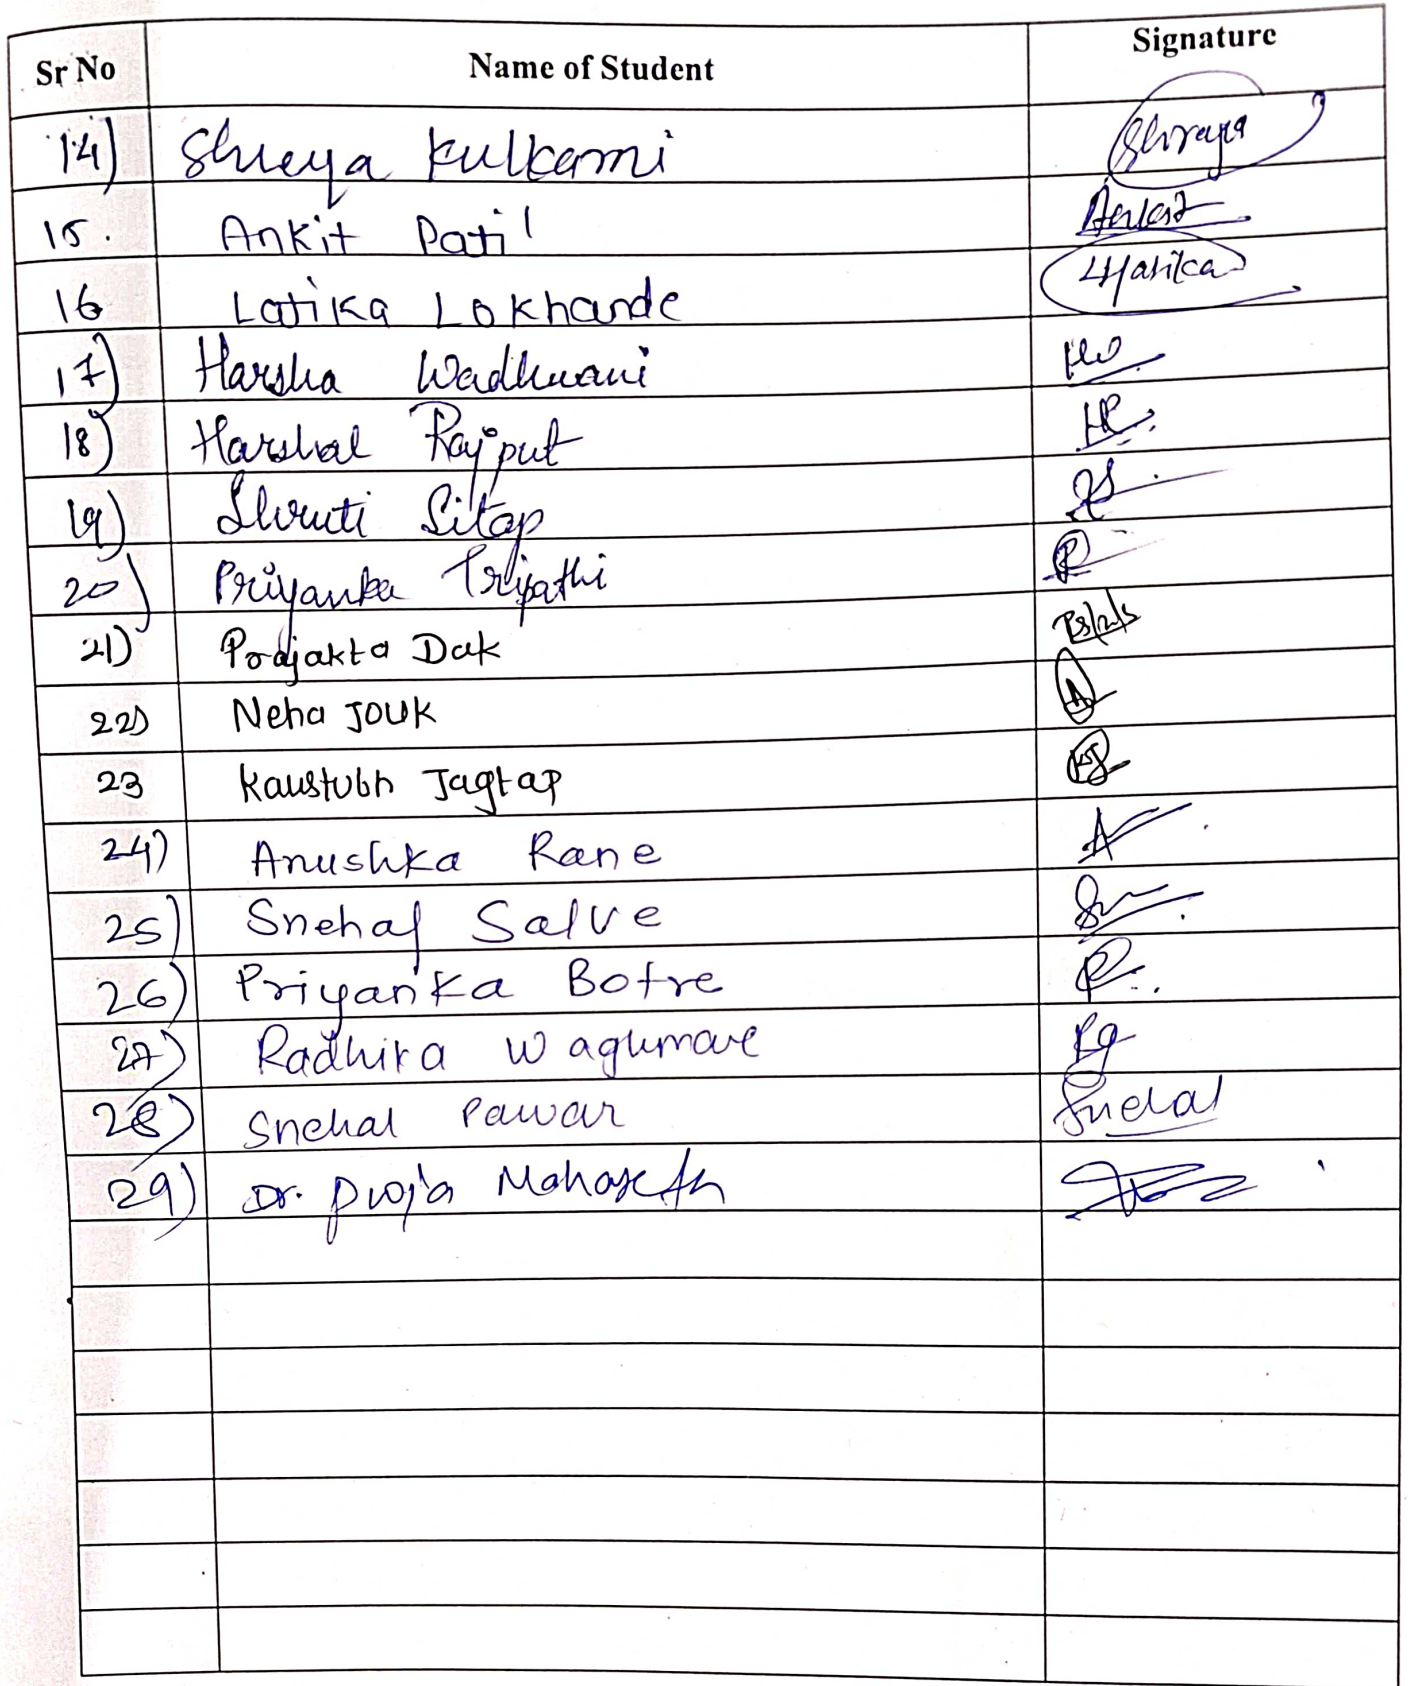 Sr No Name of Student Signature
14) Shreya Kulkarni Shreya
15. Ankit Patil Ankit
16 Latika Lokhande Latika
17) Harsha Wadhwani HW
18) Harshal Rajput HR
19) Shruti Sitap
20) Priyanka Tripathi P
21) Prajakta Dak
22) Neha JOUK
23 Kaustubh Jagtap KJ
24) Anushka Rane A
25) Snehal Salve
26) Priyanka Botre P
27) Radhika Waghmare
28) Snehal Pawar Snehal
29) Dr. Puja Mahaseth